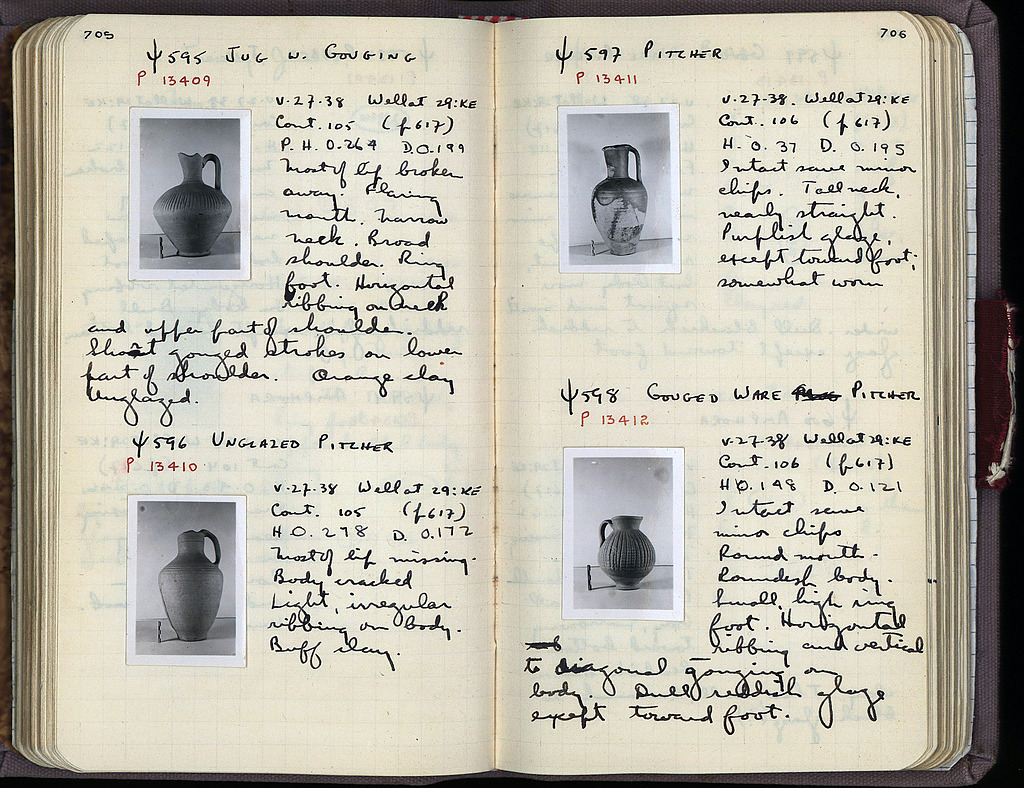 705
ψ 595 JUG W. GOUGING
P 13409
V·27·38 Well at 29:KE
Cont. 105 (p 617)
P. H. 0.264 D. 0.199
Most of lip broken
away. Flaring
mouth, narrow
neck. Broad
shoulder. Ring
foot. Horizontal
ribbing on neck
and upper part of shoulder.
Short gouged strokes on lower
part of shoulder. Orange clay
Unglazed.
ψ 596 UNGLAZED PITCHER
P 13410
V·27·38 Well at 29:KE
Cont. 105 (p 617)
H 0.298 D. 0.172
Most of lip missing.
Body cracked
Light, irregular
ribbing on body.
Buff clay.
706
ψ 597 PITCHER
P 13411
V·27·38. Well at 29:KE
Cont. 106 (p 617)
H. 0.37 D. 0.195
Intact save minor
chips. Tall neck,
nearly straight.
Purplish glaze,
except toward foot;
somewhat worn
ψ 598 GOUGED WARE PITCHER
P 13412
V·27·38 Well at 29:KE
Cont. 106 (p 617)
H 0.148 D. 0.121
Intact save
minor chips
Round mouth.
Roundish body.
Small, high ring
foot. Horizontal
ribbing and vertical
to diagonal gouging on
body. Dull reddish glaze
except toward foot.